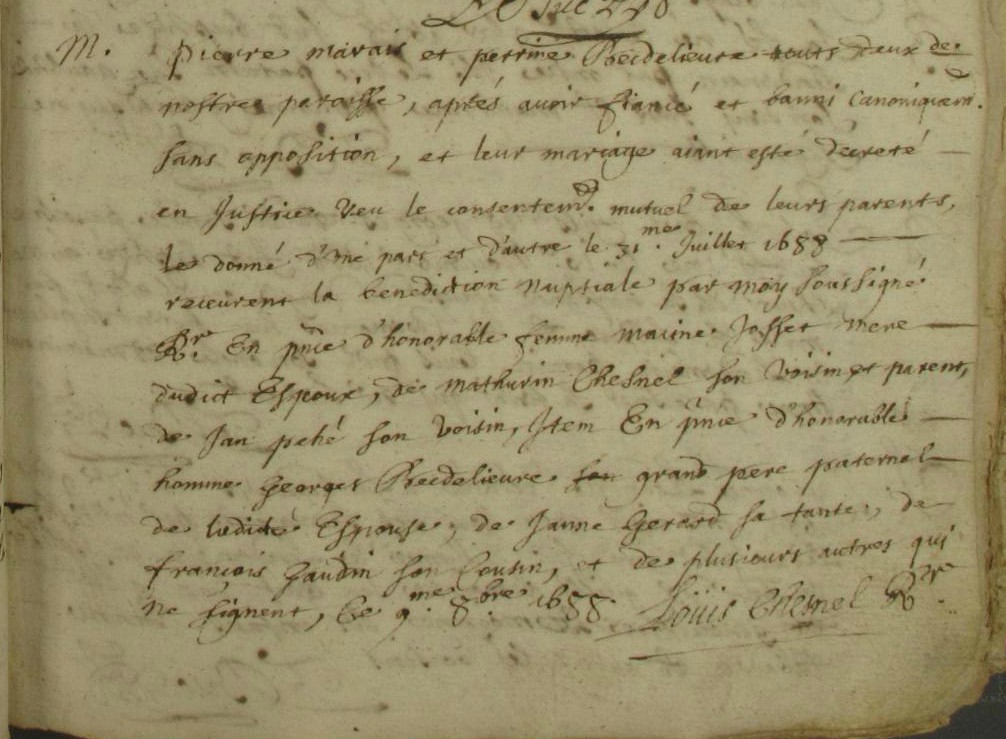 M. Pierre marais et perrine Becdelieure touts deux de
nostre paroisse, aprés avoir fiancé et banni Canoniquem.
sans opposition, et leur mariage aiant esté decreté
en Justice Veu le consentemt. mutuel de leurs parents,
Le donné d'une part et d'autre le 31me. Juillet 1688
receurent la benediction nuptiale par moy soussigné
Rr. En pnce d'honorable femme Josset mere
dudict Espoux, de mathurin Chesnel son voisin et parent,
de Jan pehé son voisin, Item En pnce d'honorable
homme Georges Becdelieure grand pere paternel
de ladicte Espouse, de Janne Gerard sa tante, de
francois Gaudin son Cousin, et de plusieurs autres qui
ne signent, ce 9me 8bre 1688. Loüis Chesnel Rr.